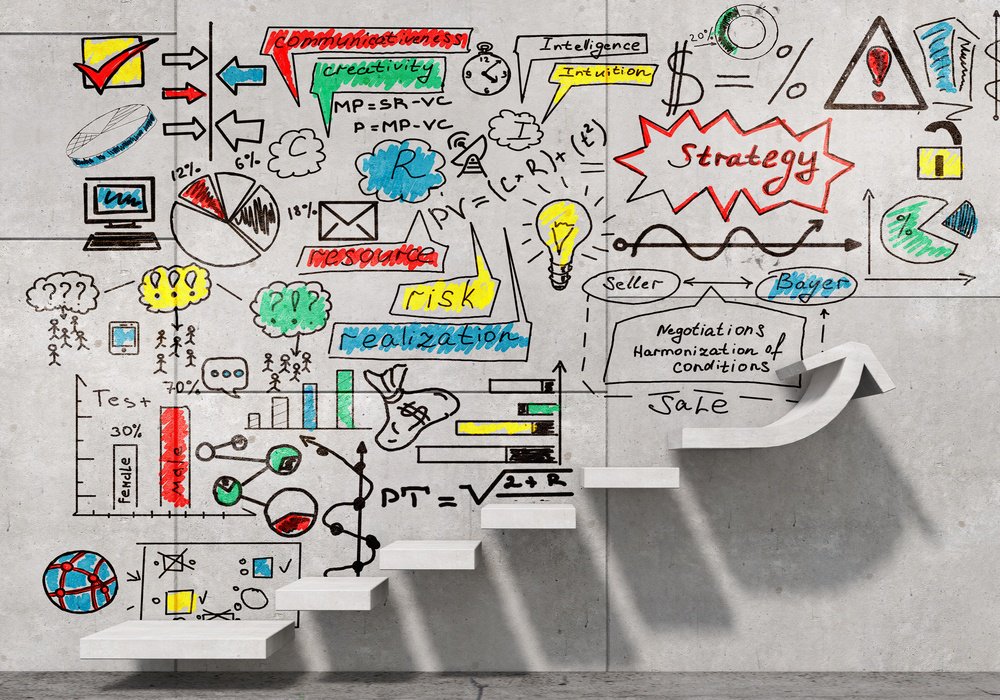 communicativeness
creativity
MP=SR-VC
P=MP-VC
12
Intelligence
Intuition
20%
$ = %
!
Strategy
C
R
I
PV=(C+R)×(t²)
=
12%
6%
18%
resource
risk
realization
%
Seller
Bayer
Negotiations
Harmonization of
conditions
Sale
???
!!!
?!?
...
Test
70%
30%
Female
Male
$
PT=√2+R